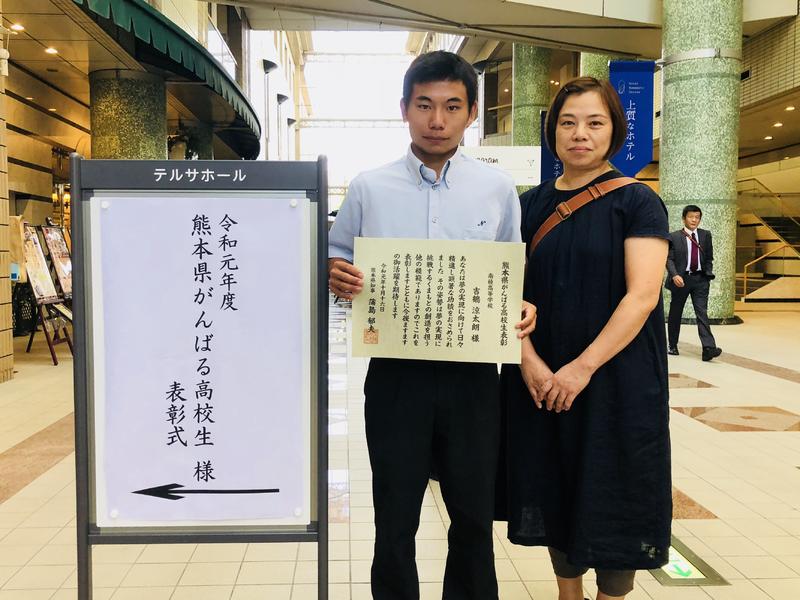 テルサホール
令和元年度
熊本県がんばる高校生 様
表彰式
熊本県がんばる高校生表彰
南稜高等学校
吉鶴 涼太朗 様
あなたは夢の実現に向けて日々
精進し顕著な功績をおさめられ
ました その姿勢は夢の実現に
挑戦するくまもとの創造を担う
他の模範でありますのでこれを
表彰しますとともに今後ますます
の御活躍を期待します
令和元年十月十六日
熊本県知事 蒲島 郁夫
上質なホテル